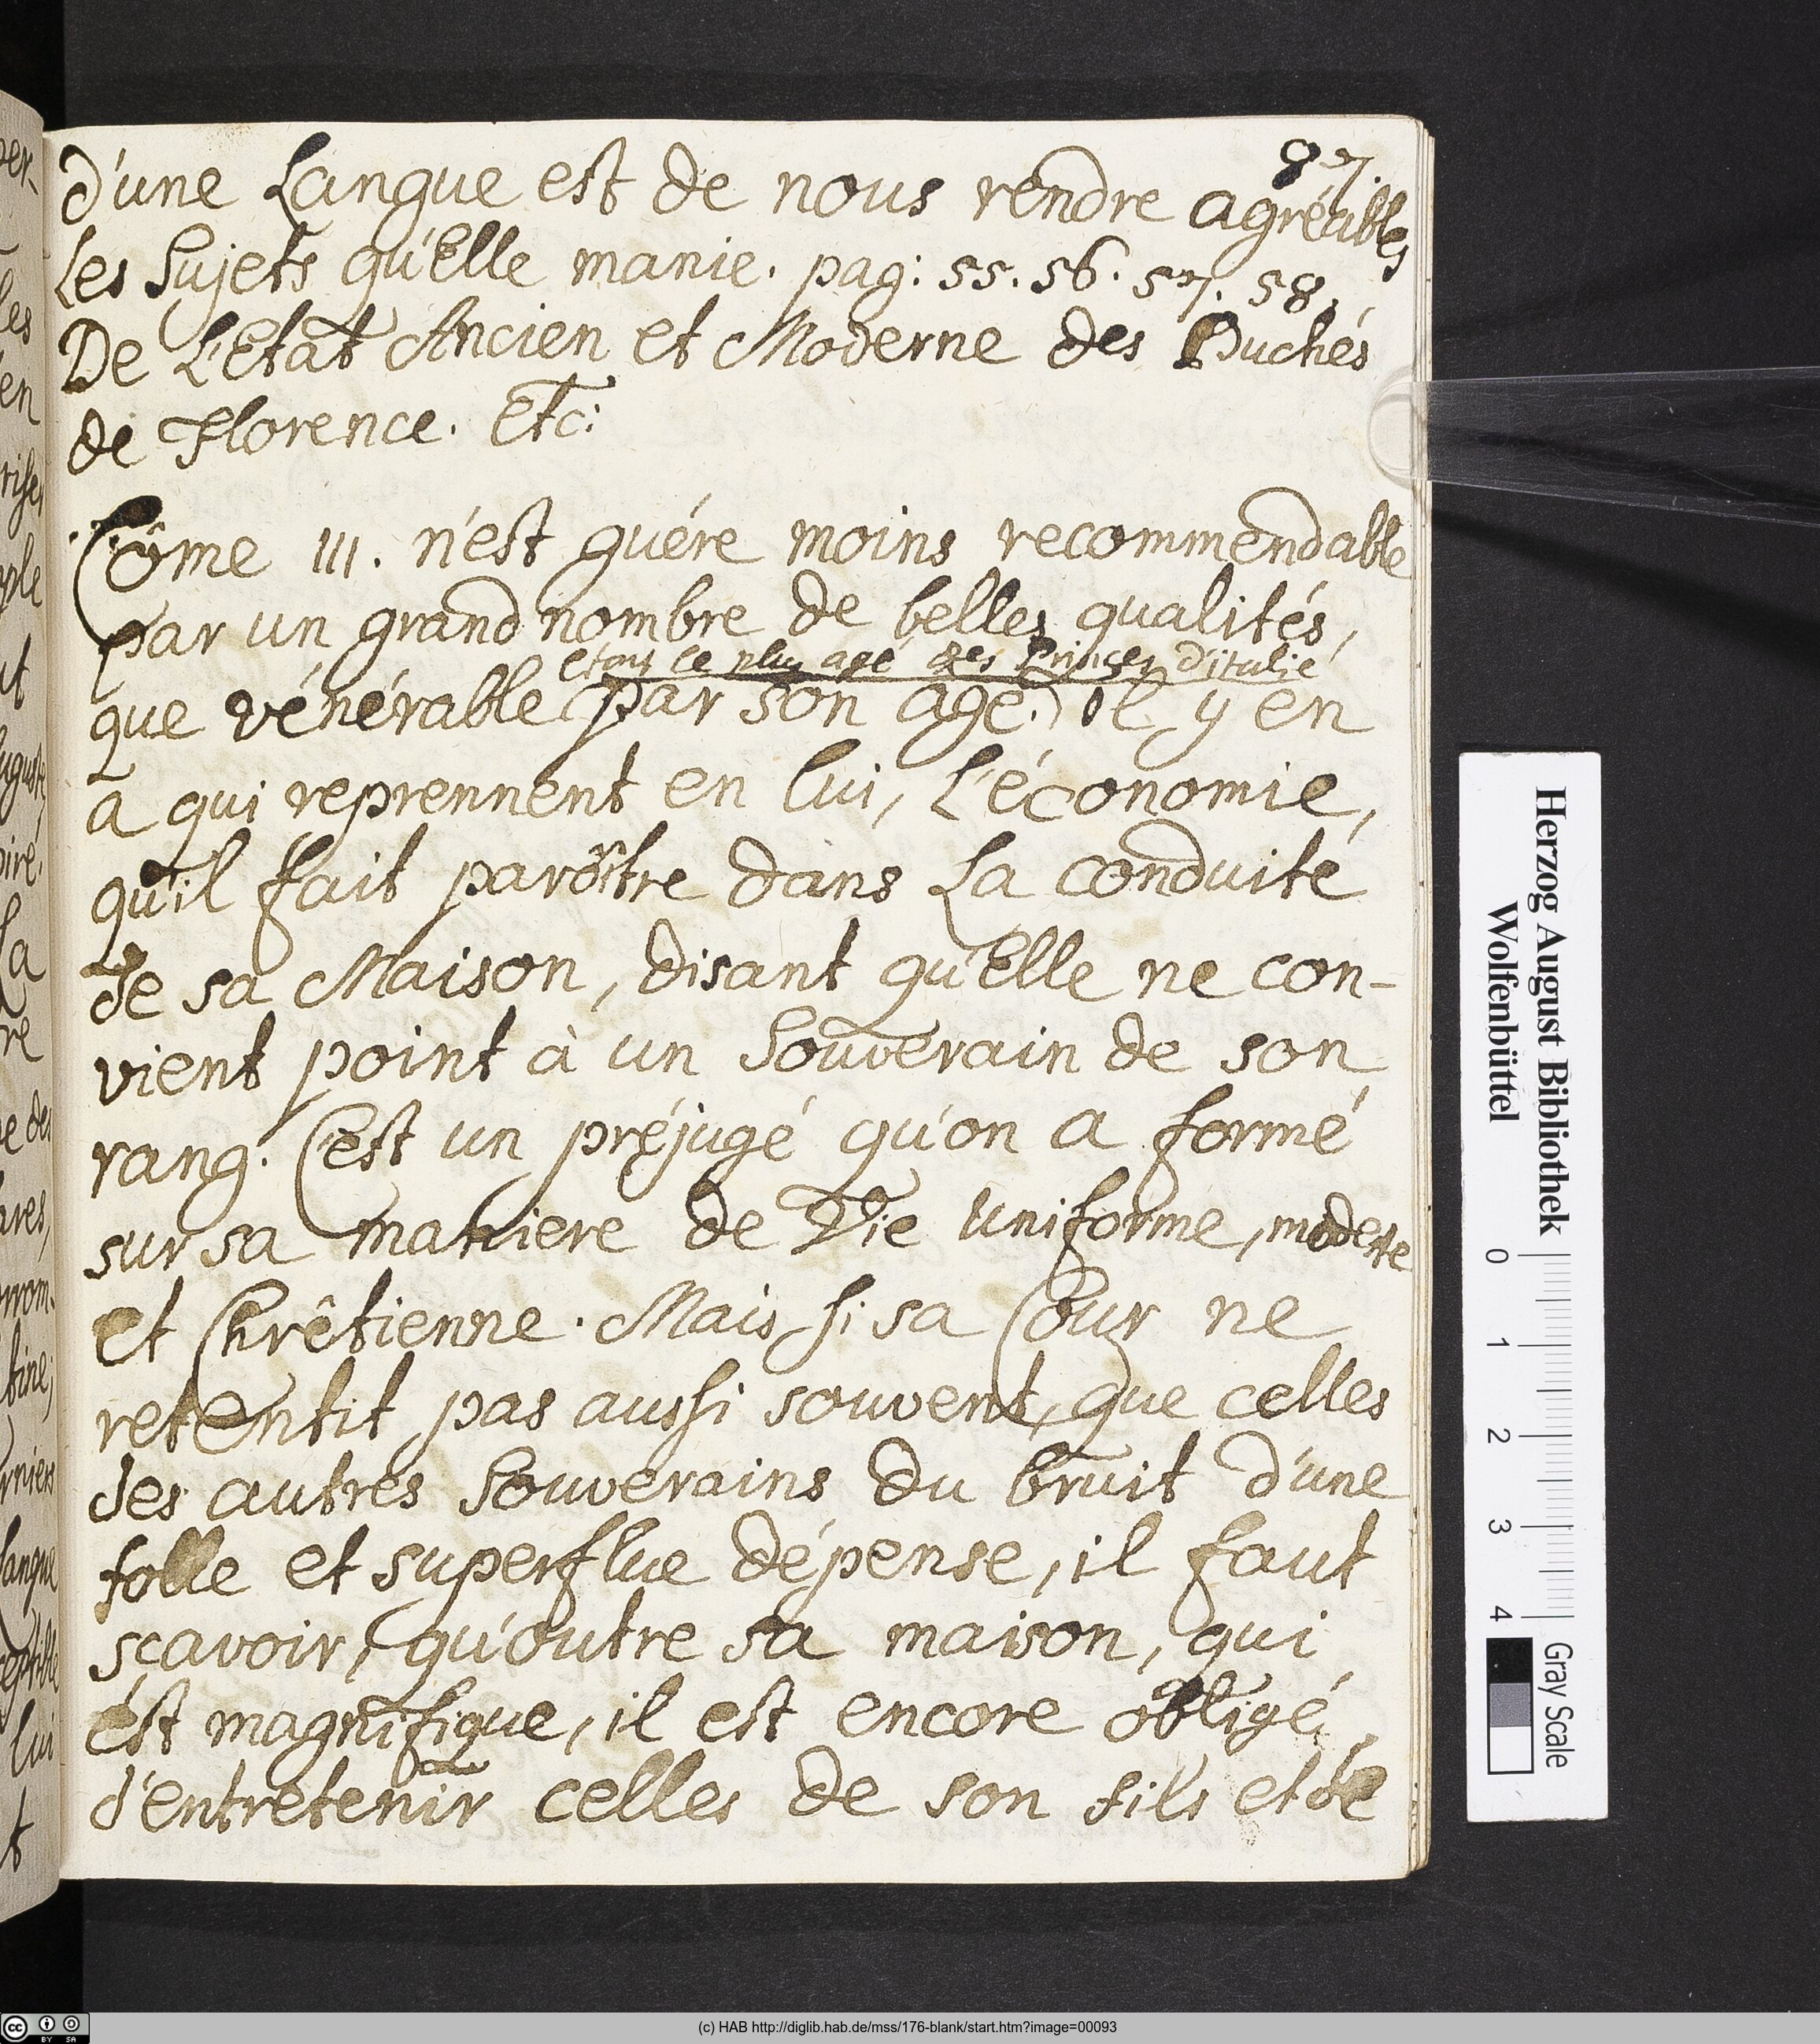 87.
d'une Langue est de nous rendre agréables
Les Sujets qu'Elle manie. pag: 55. 56. 57. 58.
De L'Etat Ancien et Moderne des Duchés
de Florence. Etc:
Côme III. n'est guére moins recommendable
par un grand nombre de belles qualités,
etant le plus agé des Princes d'italie
que vénérable (par son age.) il y en
a qui reprennent en lui, L'économie,
qu'il fait paroître dans La conduite
de sa Maison, disant qu'Elle ne con-
vient point à un Souverain de son
rang. C'est un préjugé qu'on a formé
sur sa maniere de Vie uniforme, modeste
et Chrêtienne. Mais si sa Cour ne
retentit pas aussi souvent, que celles
des autres Souverains du bruit d'une
folle et superflue dépense, il faut
sçavoir, qu'outre sa maison, qui
est magnifique, il est encore obligé
d'entretenir celles de son fils et de
Herzog August Bibliothek
Wolfenbüttel
0 1 2 3 4
Gray Scale
(c) HAB http://diglib.hab.de/mss/176-blank/start.htm?image=00093